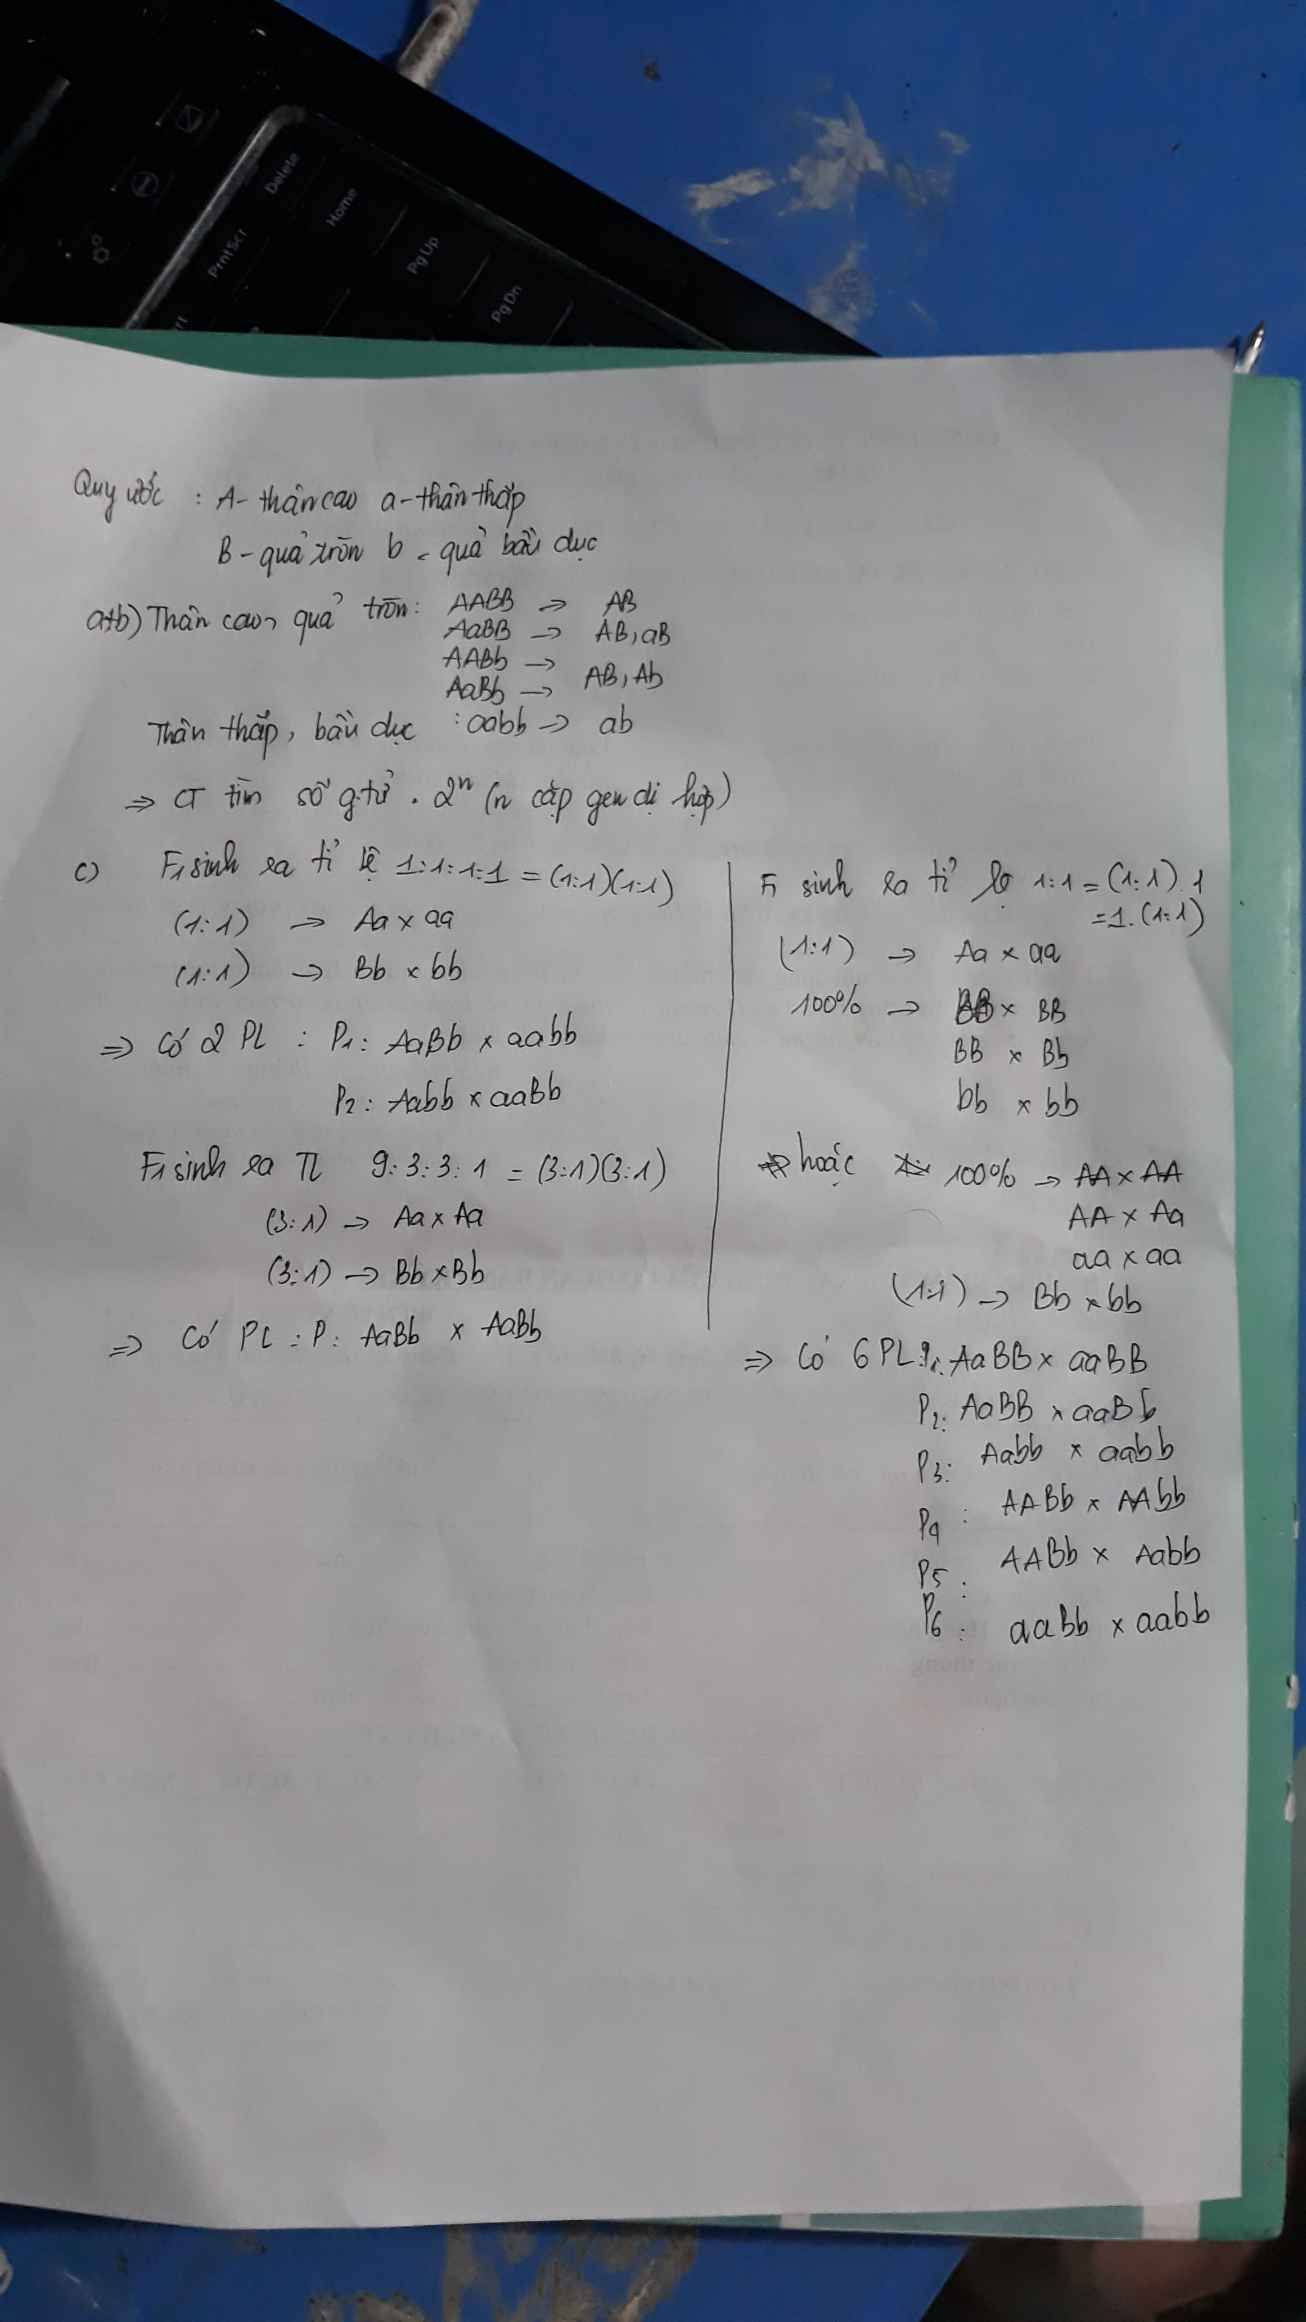 Delete
Home
PrntScr
PgUp
PgDn
Quy ước : A - thân cao a - thân thấp
B - quả tròn b - quả bầu dục
a+b) Thân cao, quả tròn: AABB → AB
AaBB → AB, aB
AABb →
AaBb → AB, Ab
Thân thấp, bầu dục : aabb → ab
⇒ CT tìm số g.tử . 2ⁿ (n cặp gen dị hợp)
c) F₁ sinh ra tỉ lệ 1:1:1:1 = (1:1)(1:1)
(1:1) → Aa x aa
(1:1) → Bb x bb
⇒ Có 2 PL : P₁: AaBb x aabb
P₂: Aabb x aaBb
F₁ sinh ra TL 9:3:3:1 = (3:1)(3:1)
(3:1) → Aa x Aa
(3:1) → Bb x Bb
⇒ Có PL : P: AaBb x AaBb
F₁ sinh ra tỉ lệ 1:1 = (1:1).1
= 1.(1:1)
(1:1) → Aa x aa
100% → BB x BB
BB x Bb
bb x bb
hoặc 100% → AA x AA
AA x Aa
aa x aa
(1:1) → Bb x bb
⇒ Có 6 PL P₁: AaBB x aaBB
P₂: AaBB x aaBb
P₃: Aabb x aabb
P₄: AABb x AAbb
P₅: AABb x Aabb
P₆: aaBb x aabb